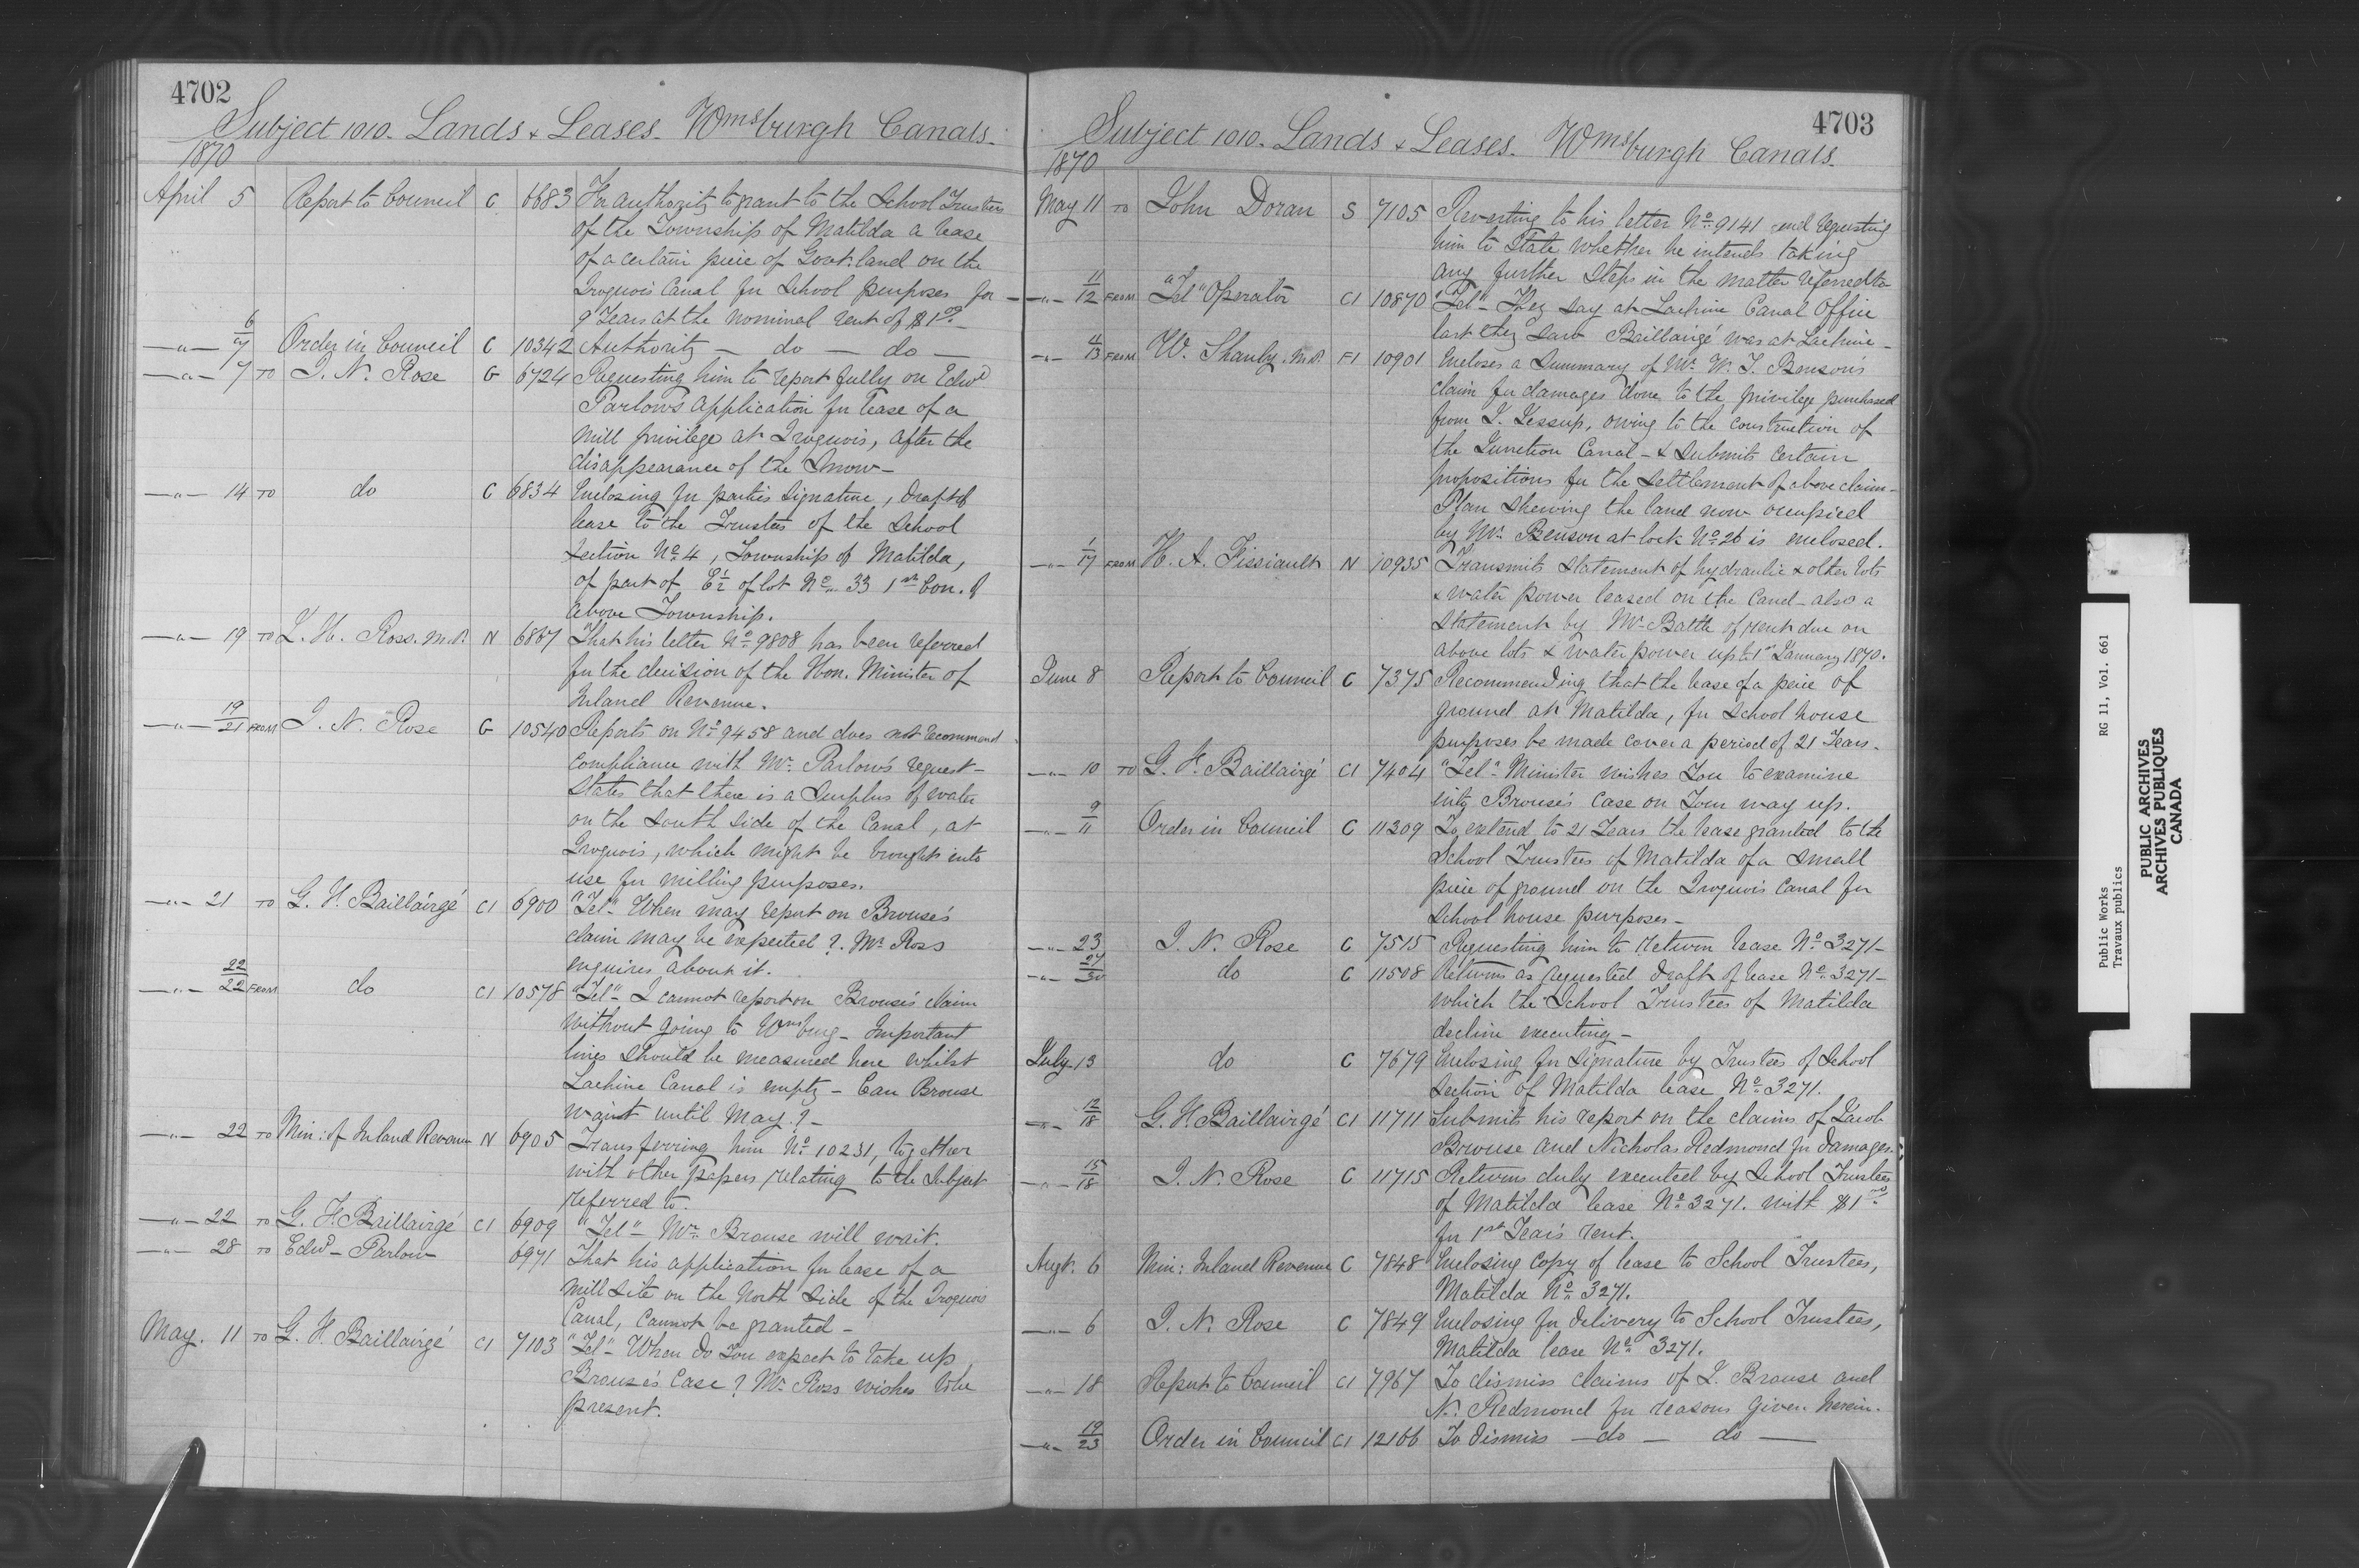 4702
Subject 1010. Lands & Leases. Wmsburgh Canals.
1870
April 5 Report to Council C 6683 For authority to grant to the School Trustees
of the Township of Matilda a lease
of a certain piece of Govt. land on the
Iroquois Canal for School purposes for
9 Years at the nominal rent of $1.00
—"— 6/7 Order in Council C 10342 Authority — do — do —
—"— 7 TO J. N. Rose G 6724 Requesting him to report fully on Edwd
Parlow's application for lease of a
mill privilege at Iroquois, after the
disappearance of the Snow—
—"— 14 TO do C 6834 Enclosing for parties signature, draft of
lease to the Trustees of the School
Section No. 4, Township of Matilda,
of part of E 1/2 of lot No. 33 1st Con. of
above Township.
—"— 19 TO J. H. Ross. M.P. N 6867 That his letter No. 9808 has been referred
for the decision of the Hon. Minister of
Inland Revenue.
—"— 19/21 FROM J. N. Rose G 10540 Reports on No. 9458 and does not recommend
compliance with Mr. Parlow's request—
States that there is a Surplus of water
on the South Side of the Canal, at
Iroquois, which might be brought into
use for milling purposes.
—"— 21 TO G. F. Baillairgé C1 6900 "Tel"- When may report on Brouse's
claim may be expected? Mr. Ross
enquires about it.
—"— 22/22 FROM do C1 10578 "Tel"- I cannot report on Brouse's claim
without going to Wmsburg— Important
lines should be measured here whilst
Lachine Canal is empty— Can Brouse
wait until May?—
—"— 22 TO Min: of Inland Revenue N 6905 Transferring him No. 10231, together
with other papers relating to the Subject
referred to.
—"— 22 TO G. F. Baillairgé C1 6909 "Tel"- Mr. Brouse will wait.
—"— 28 TO Edwd— Parlow 6971 That his application for lease of a
mill site on the North Side of the Iroquois
Canal, cannot be granted—
May. 11 TO G. F. Baillairgé C1 7103 "Tel"- When do You expect to take up
Brouse's Case? Mr. Ross wishes to be
present.
4703
Subject 1010. Lands & Leases. Wmsburgh Canals.
1870
May 11 TO John Doran S 7105 Reverting to his letter No. 9141 and requesting
him to State whether he intends taking
any further Steps in the matter referred to
—"— 11/12 FROM "Tel" Operator C1 10870 "Tel"- They say at Lachine Canal Office
last they saw Baillairgé was at Lachine—
—"— 4/13 FROM W. Shanly. M.P. F1 10901 Encloses a Summary of Mr. W. T. Benson's
claim for damages done to the privilege purchased
from J. Jessup, owing to the construction of
the Junction Canal— & Submits certain
propositions for the Settlement of above claim—
Plan shewing the land now occupied
by Mr. Benson at lock No. 26 is enclosed.
—"— 1/17 FROM H. A. Fissiault N 10935 Transmits Statement of hydraulic & other lots
& water power leased on the Canal— also a
Statement by Mr. Battle of rent due on
above lots & water power up to 1st January 1870.
June 8 Report to Council C 7375 Recommending that the lease of a piece of
ground at Matilda, for School house
purposes be made cover a period of 21 Years.
—"— 10 TO G. F. Baillairgé C1 7404 "Tel"- Minister wishes You to examine
into Brouse's Case on Your way up.
—"— 9/11 Order in Council C 11309 To extend to 21 Years the lease granted to the
School Trustees of Matilda of a small
piece of ground on the Iroquois Canal for
School house purposes—
—"— 23 J. N. Rose C 7515 Requesting him to return lease No. 3271—
—"— 27/30 do C 11508 Returns as requested, draft of lease No. 3271—
which the School Trustees of Matilda
decline executing—
July 13 do C 7679 Enclosing for signature by Trustees of School
Section of Matilda lease No. 3271.
—"— 12/18 G. F. Baillairgé C1 11711 Submits his report on the claims of Jacob
Brouse and Nicholas Redmond for damages.
—"— 15/18 J. N. Rose C 11715 Returns duly executed by School Trustees
of Matilda lease No. 3271. with $1.00
for 1st Year's rent.
Augt. 6 Min: Inland Revenue C 7848 Enclosing copy of lease to School Trustees,
Matilda No. 3271.
—"— 6 J. N. Rose C 7849 Enclosing for delivery to School Trustees,
Matilda lease No. 3271.
—"— 18 Report to Council C1 7967 To dismiss claims of J. Brouse and
N. Redmond for reasons given herein.
—"— 19/23 Order in Council C1 12166 To dismiss —do— do —
Public Works RG 11, Vol. 661
Travaux publics
PUBLIC ARCHIVES
ARCHIVES PUBLIQUES
CANADA